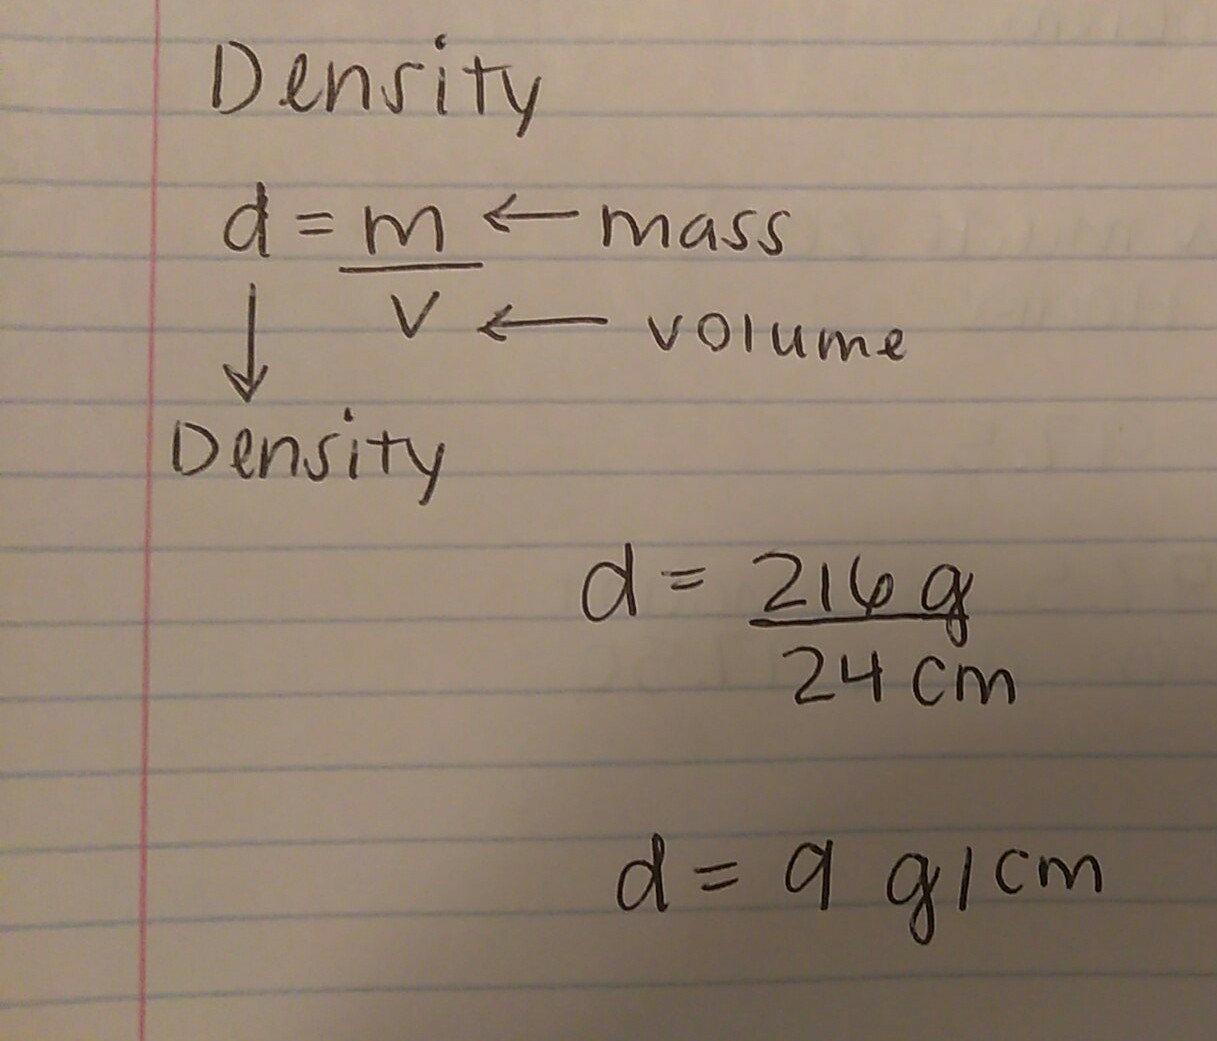 Density
d = m ← mass
v ← volume
↓
Density
d = 216 g
24 cm
d = 9 g/cm